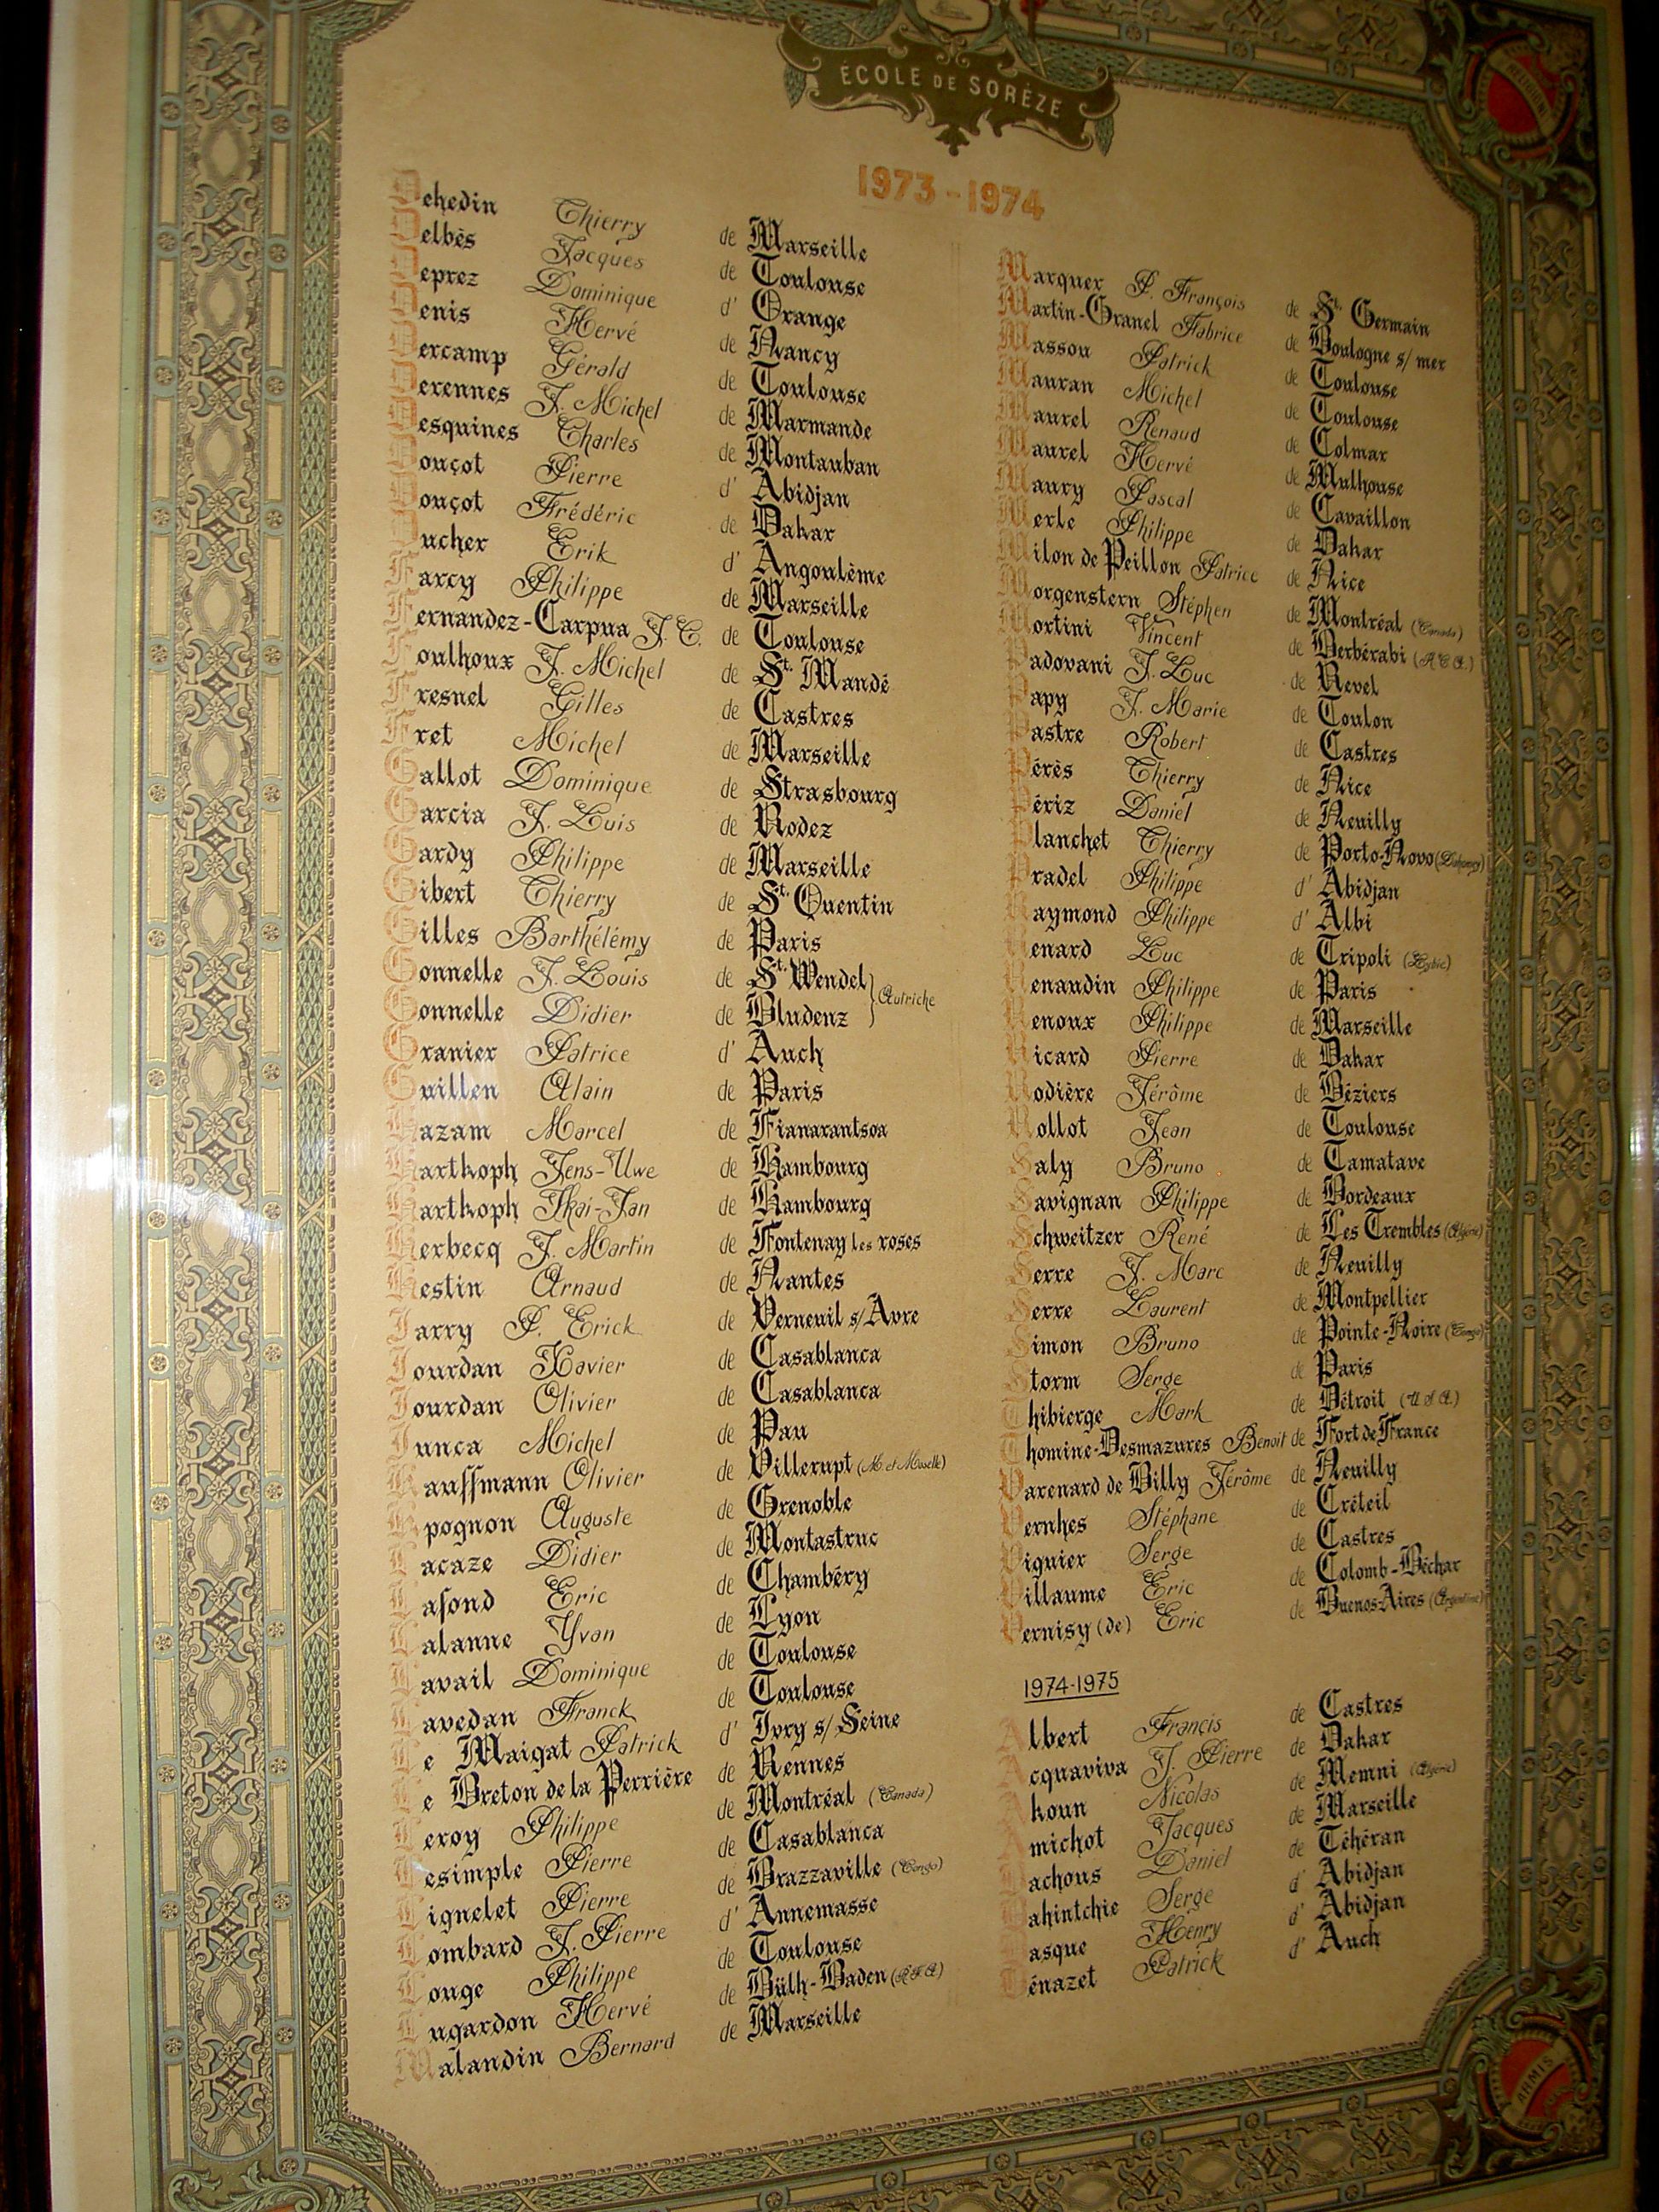 ÉCOLE DE SORÈZE
1973-1974
Dehedin Thierry de Marseille
Delbès Jacques de Toulouse
Deprez Dominique d' Orange
Denis Hervé de Nancy
Dercamp Gérald de Toulouse
Derennes J. Michel de Marmande
Desquines Charles de Montauban
Douçot Pierre d' Abidjan
Douçot Frédéric de Dakar
Ducher Erik d' Angoulème
Farcy Philippe de Marseille
Fernandez-Carpua J. C. de Toulouse
Foulhoux J. Michel de St. Mandé
Fresnel Gilles de Castres
Fret Michel de Marseille
Gallot Dominique de Strasbourg
Garcia J. Luis de Rodez
Gardy Philippe de Marseille
Gibert Thierry de St. Quentin
Gilles Barthélémy de Paris
Gonnelle J. Louis de St. Wendel
Gonnelle Didier de Bludenz } Autriche
Granier Patrice d' Auch
Guillen Alain de Paris
Hazam Marcel de Fianarantsoa
Hartkoph Jens-Uwe de Hambourg
Hartkoph Kai-Jan de Hambourg
Herbecq J. Martin de Fontenay les roses
Hestin Arnaud de Nantes
Jarry P. Erick de Verneuil s/Avre
Jourdan Xavier de Casablanca
Jourdan Olivier de Casablanca
Junca Michel de Pau
Kauffmann Olivier de Villerupt (M et Moselle)
Kpognon Auguste de Grenoble
Lacaze Didier de Montastruc
Lafond Eric de Chambéry
Lalanne Yvan de Lyon
Lavail Dominique de Toulouse
Lavedan Franck de Toulouse
Le Maigat Patrick d' Ivry s/ Seine
Le Breton de la Perrière de Rennes
Leroy Philippe de Montréal (Canada)
Lesimple Pierre de Casablanca
Lignelet Pierre de Brazzaville (Congo)
Lombard J. Pierre d' Annemasse
Longe Philippe de Toulouse
Lugardon Hervé de Bülh-Baden (R.F.A)
Malandin Bernard de Marseille
Marquer P. François de St. Germain
Martin-Granel Fabrice de Boulogne s/ mer
Massou Patrick de Toulouse
Mauran Michel de Toulouse
Maurel Renaud de Colmar
Maurel Hervé de Mulhouse
Maury Pascal de Cavaillon
Merle Philippe de Dakar
Milon de Peillon Patrice de Nice
Morgenstern Stéphen de Montréal (Canada)
Mortini Vincent de Berbérabi (R C A.)
Padovani J. Luc de Revel
Papy J. Marie de Toulon
Pastre Robert de Castres
Pérès Thierry de Nice
Périz Daniel de Neuilly
Planchet Thierry de Porto-Novo (Dahomey)
Pradel Philippe d' Abidjan
Raymond Philippe d' Albi
Renard Luc de Tripoli (Lybie)
Renaudin Philippe de Paris
Renoux Philippe de Marseille
Ricard Pierre de Dakar
Rodière Jérôme de Béziers
Rollot Jean de Toulouse
Saly Bruno de Tamatave
Savignan Philippe de Bordeaux
Schweitzer René de Les Trembles (Algérie)
Serre J. Marc de Neuilly
Serre Laurent de Montpellier
Simon Bruno de Pointe-Noire (Congo)
Storm Serge de Paris
Thibierge Mark de Détroit (U S A)
Thomine-Desmazures Benoit de Fort de France
Varenard de Billy Jérôme de Neuilly
Vernhes Stéphane de Créteil
Viguier Serge de Castres
Villaume Eric de Colomb-Béchar
Vernisy (de) Eric de Buenos-Aires (Argentine)
1974-1975
Albert Francis de Castres
Acquaviva J. Pierre de Dakar
Akoun Nicolas de Memni (Algérie)
Amichot Jacques de Marseille
Bachous Daniel de Téhéran
Bahintchie Serge d' Abidjan
Basque Henry d' Abidjan
Bénazet Patrick d' Auch
ARMIS